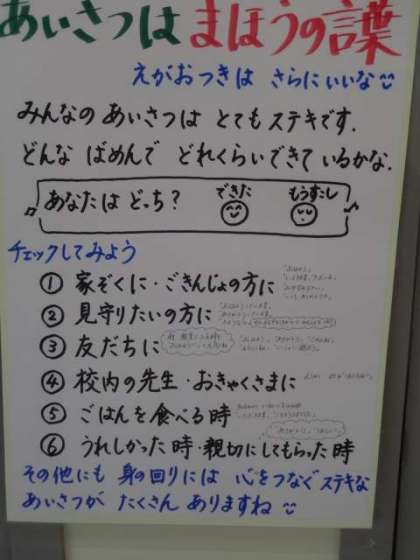 あいさつは まほうの言葉
えがおつきは さらにいいな
みんなの あいさつは とてもステキです.
どんな ばめんで どれくらいできて いるかな.
あなたは どっち? できた もうすこし
チェックしてみよう
① 家ぞくに・ごきんじょの方に
② 見守りたいの方に
③ 友だちに
④ 校内の先生・おきゃくさまに
⑤ ごはんを食べる時
⑥ うれしかった時・親切にしてもらった時
その他にも 身の回りには 心をつなぐステキな
あいさつが たくさん ありますね